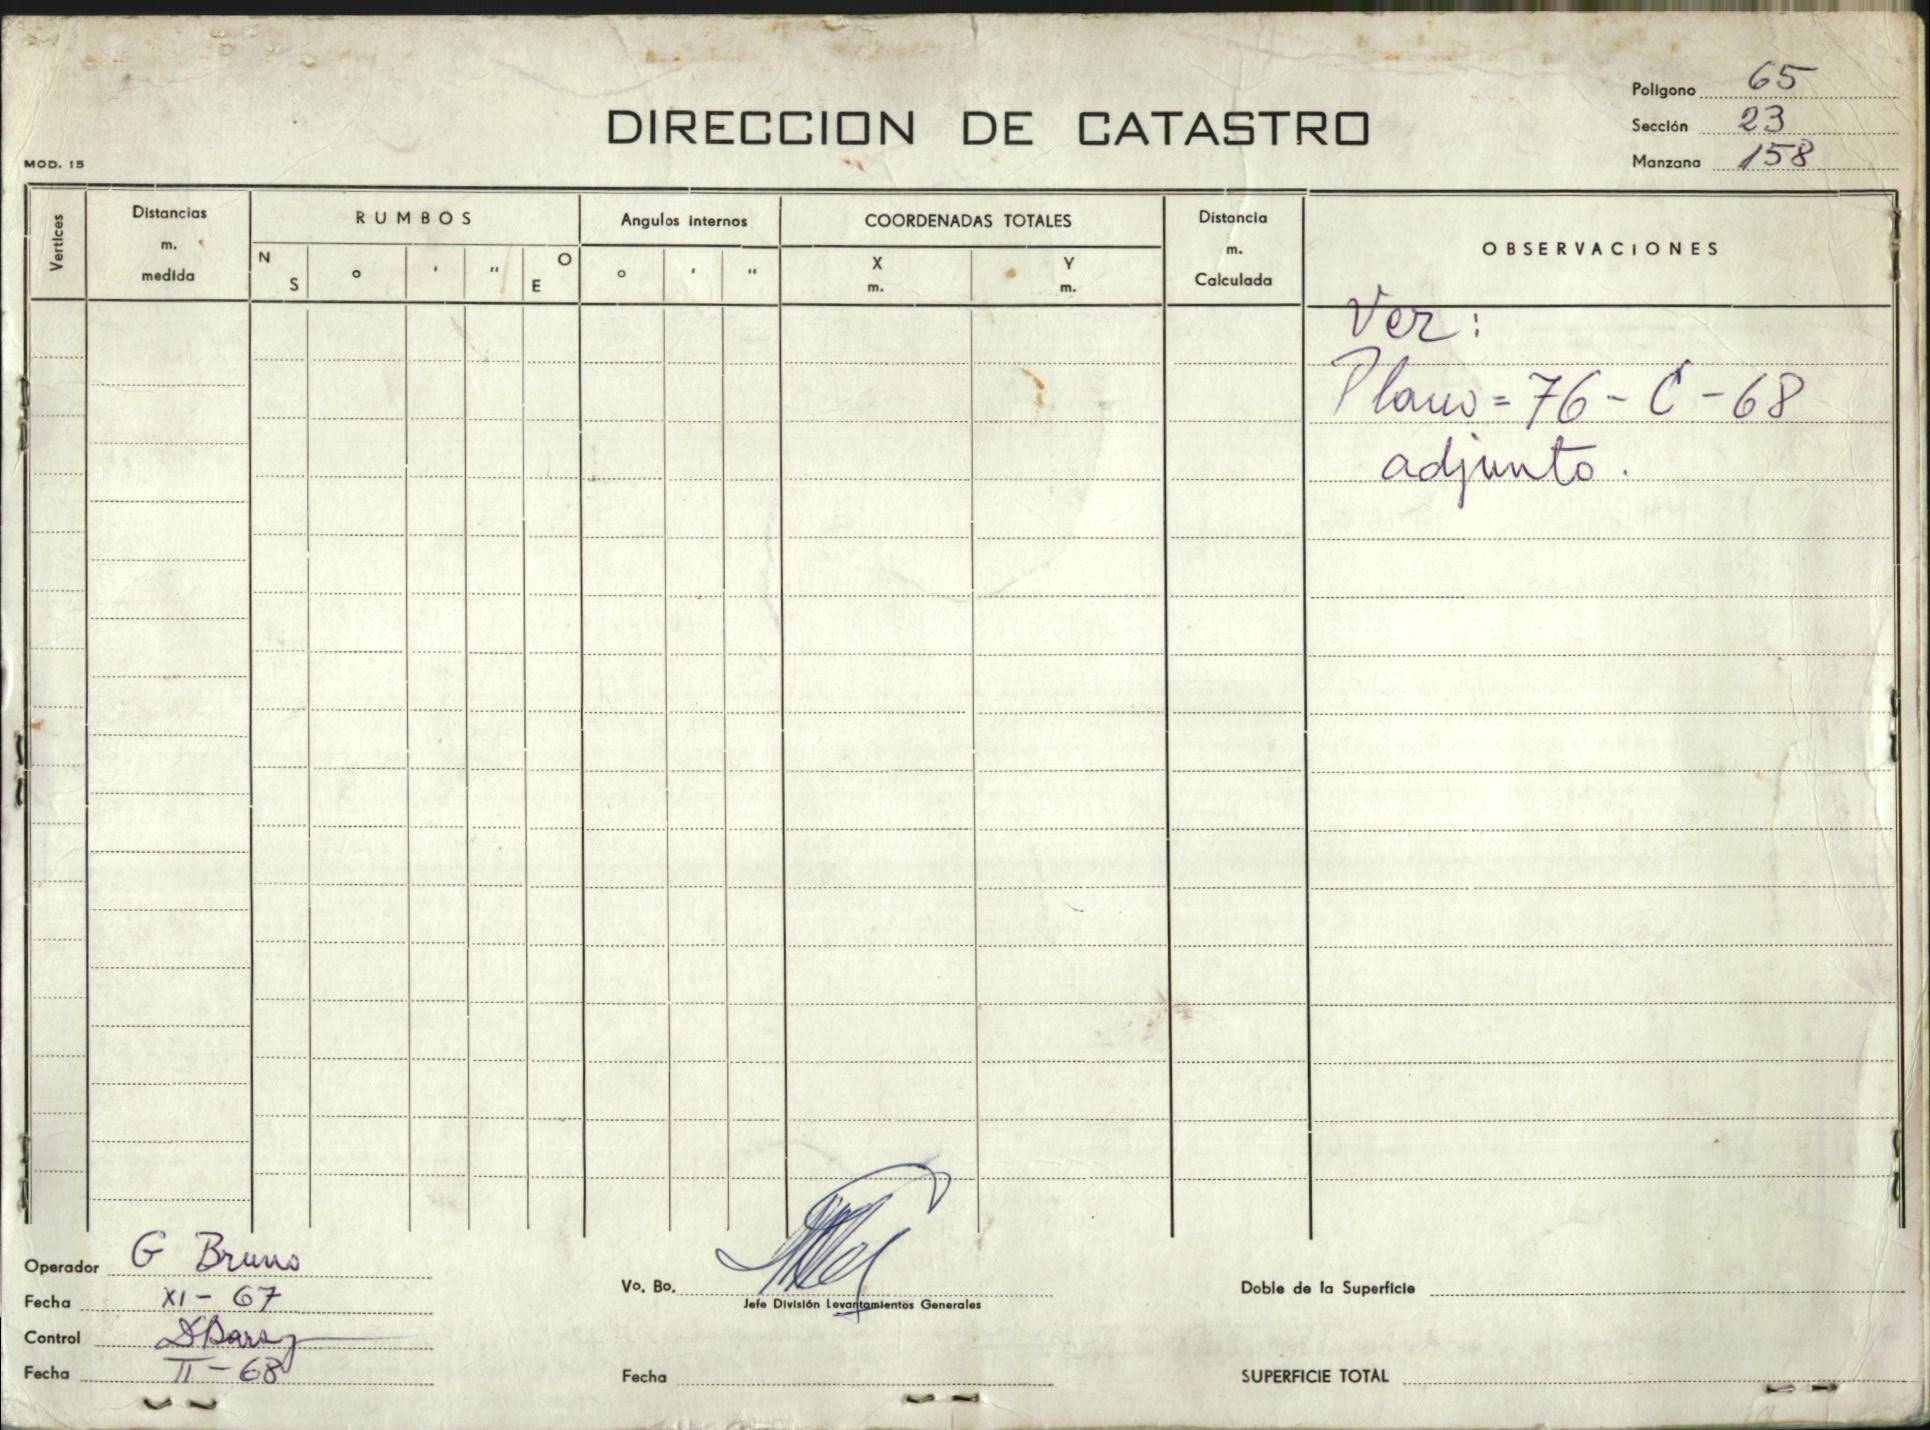 Polígono 65
DIRECCION DE CATASTRO
Sección 23
MOD. 15
Manzana 158
Vertices
Distancias
m.
medida
RUMBOS
N
S
°
'
"
O
E
Angulos internos
°
'
"
COORDENADAS TOTALES
X
m.
Y
m.
Distancia
m.
Calculada
OBSERVACIONES
Ver:
Plano = 76 - C - 68
adjunto.
Operador G Bruno
Fecha XI - 67
Control
Fecha II - 68
Vo. Bo.
Jefe División Levantamientos Generales
Fecha
Doble de la Superficie
SUPERFICIE TOTAL